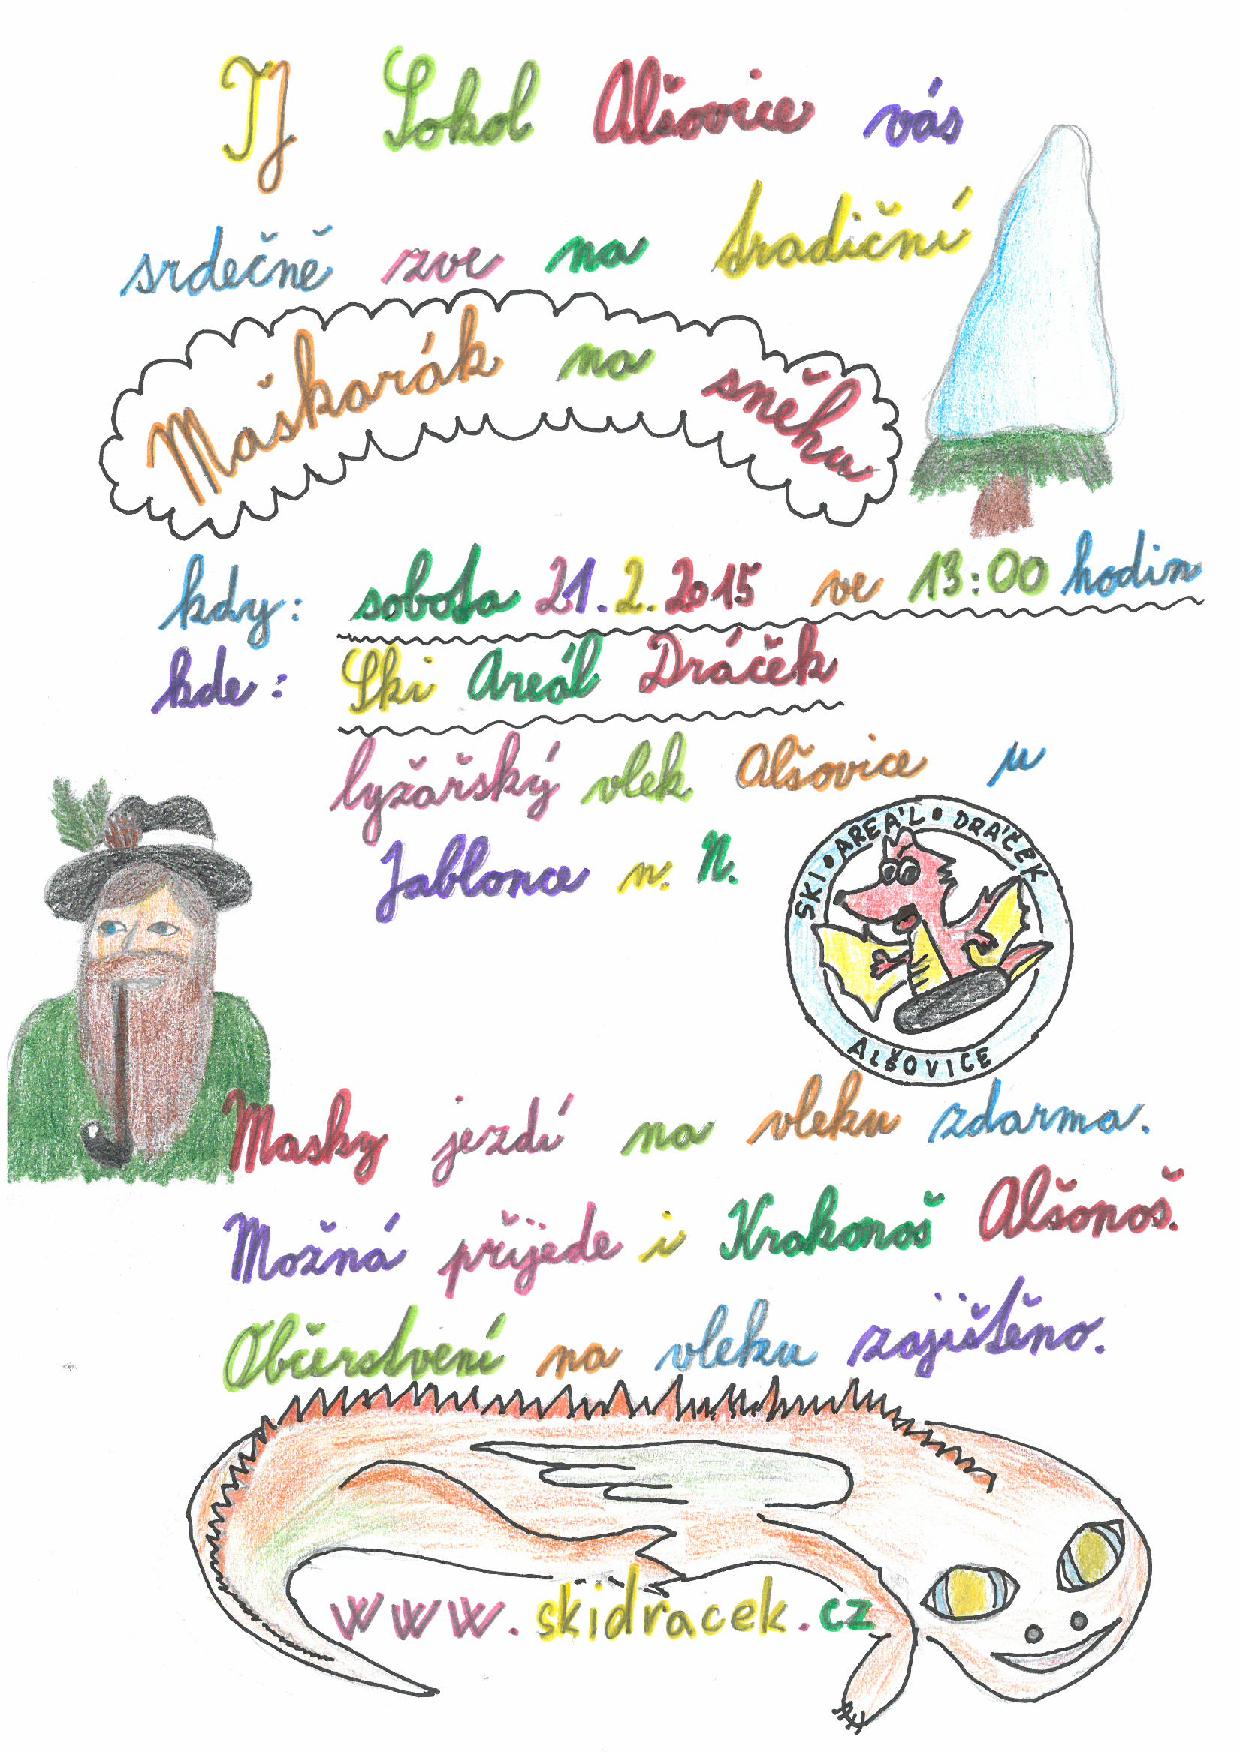 TJ Sokol Alšovice vás
srdečně zve na tradiční
Maškarák na sněhu
kdy: sobota 21.2.2015 ve 13:00 hodin
kde: Ski Areál Dráček
lyžařský vlek Alšovice u
Jablonce n. N.
SKI • AREÁL • DRÁČEK
ALŠOVICE
Masky jezdí na vleku zdarma.
Možná přijede i Krakonoš Alšonoš.
Občerstvení na vleku zajištěno.
www.skidracek.cz